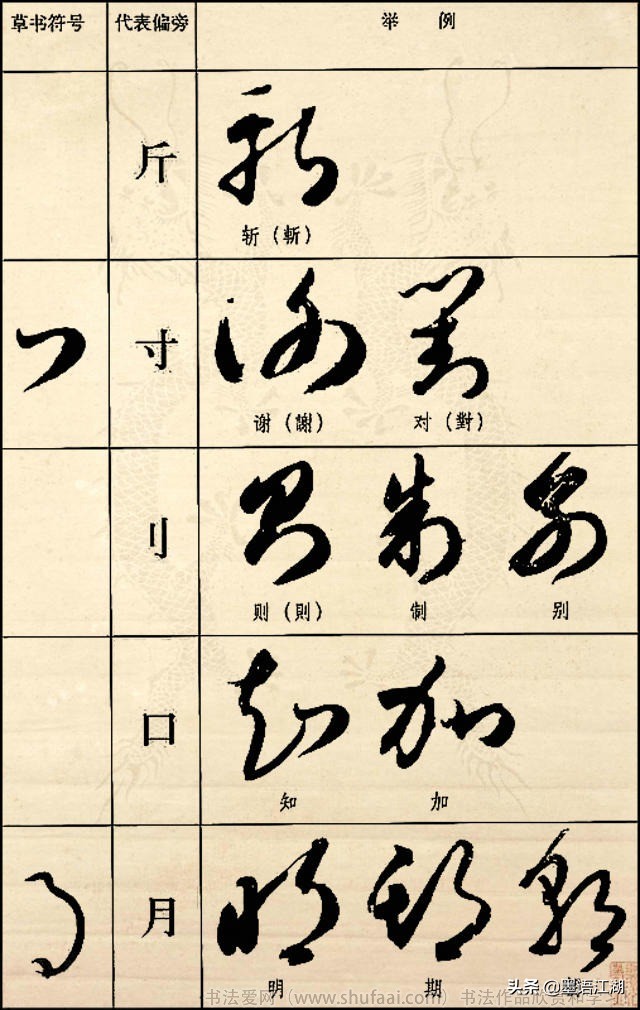 草书符号 代表偏旁 举例
斤
斩（斬）
寸
谢（謝） 对（對）
刂
则（則） 制 别
口
知 加
月
明 期
书法爱网（www.shufaai.com）书法作品欣赏和学习
头条 @墨语江湖